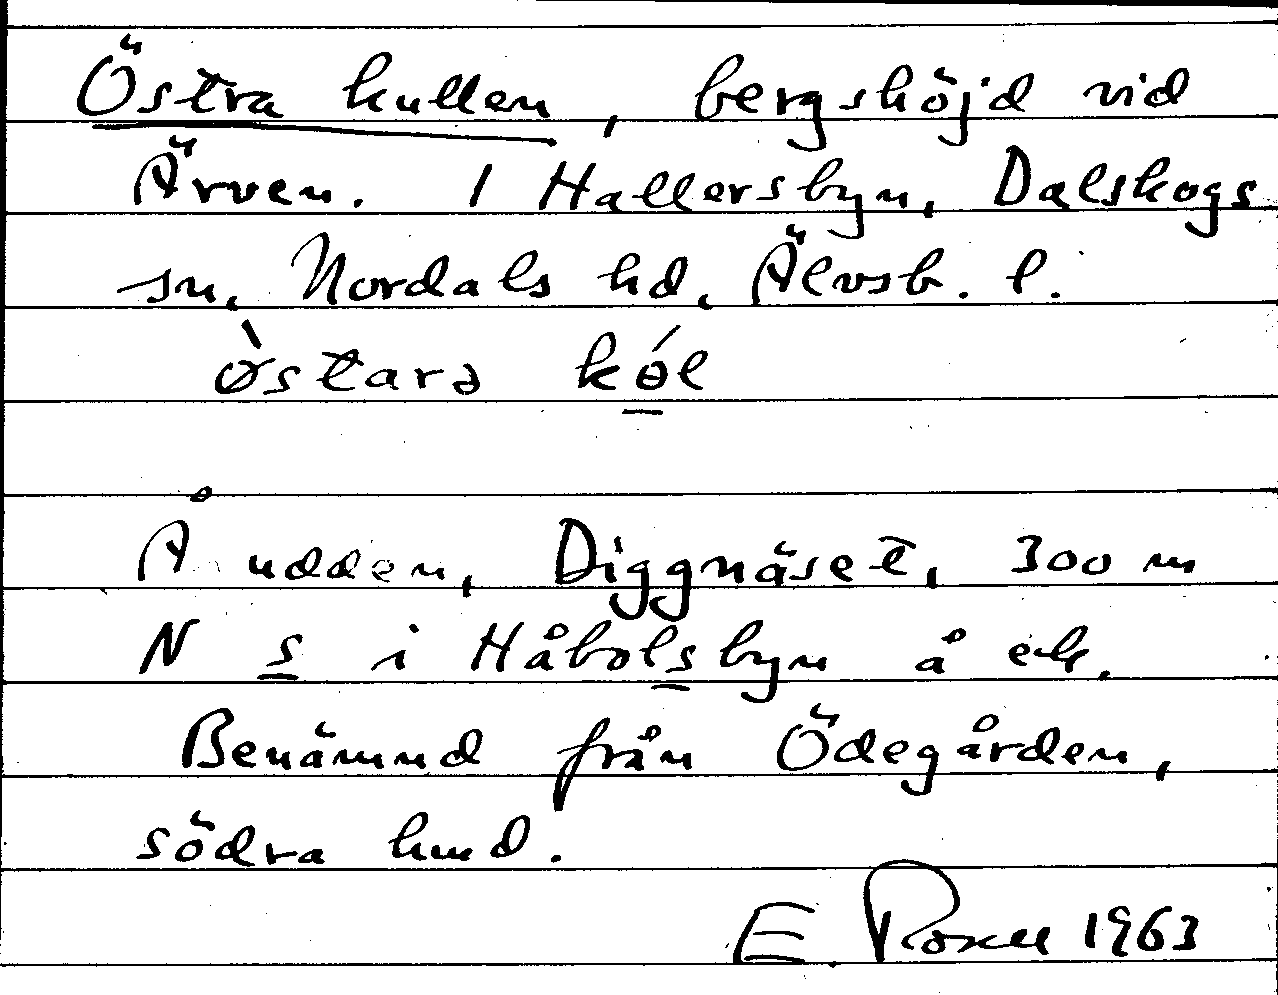 Östra kullen, bergshöjd vid
Ärven. I Hallersbyn, Dalskogs
sn, Nordals hd, Älvsb. l.
ò̈starə kɵ́l
Å udden, Diggnäset, 300 m
N s i Håbolsbyn å ek.
Benämnd från Ödegården,
södra hmd.
E. Roxell 1963